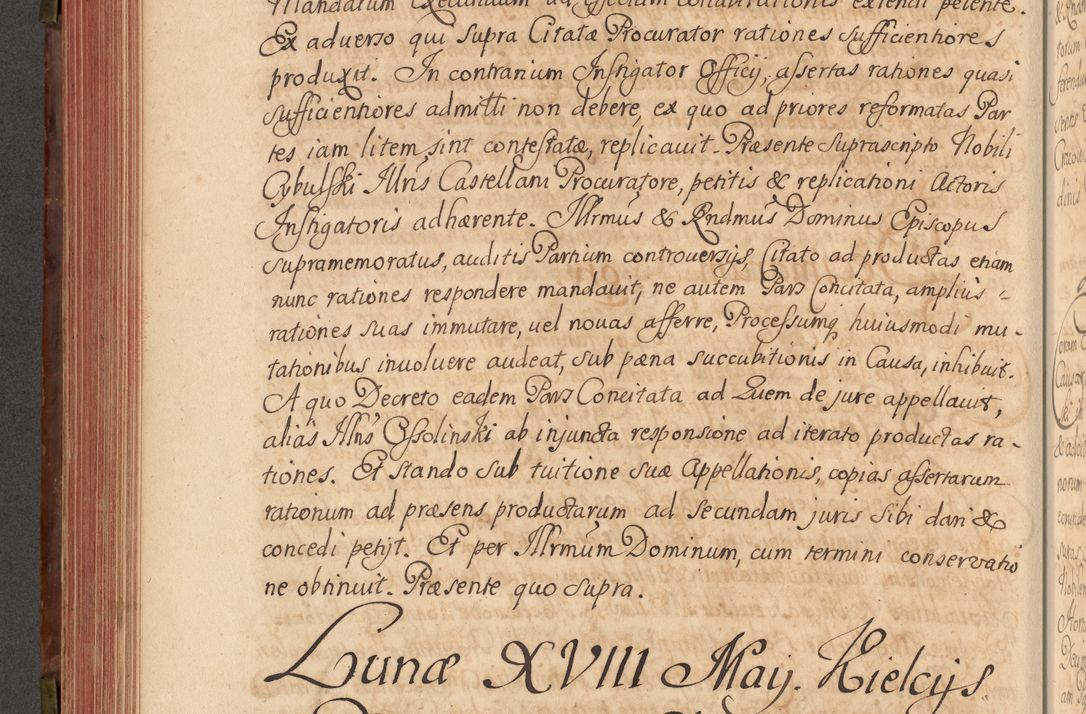 Mandatum Executiuum ad effectum condescensionis extendi petente.
Ex aduerso qui supra Citatæ Procurator rationes sufficientiores
produxit. In contrarium Instigator Officij, assertas rationes quasi
sufficientiores admitti non debere, ex quo ad priores reformatas Par
tes iam litem sint contestatæ, replicauit. Præsente suprascripto Nobili
Cybulski Illris Castellani Procuratore, petitis & replicationi Actoris
Instigatoris adhærente. Illrmus & Rndmus Dominus Episcopus
supramemoratus, auditis Partium controuersijs, Citato ad productas etiam
nunc rationes respondere mandauit, ne autem Pars Concitata, amplius
rationes suas immutare, uel nouas afferre, Processumq huiusmodi mu-
tationibus inuoluere audeat, sub pæna succubitionis in Causa, inhibuit.
A quo Decreto eadem Pars Concitata ad Quem de jure appellauit,
alias Illris Ossolinski ab injuncta responsione ad iterato productas ra-
tiones. Et stando sub tuitione suæ Appellationis, copias assertarum
rationum ad præsens productarum ad secundam juris sibi dari &
concedi petijt. Et per Illrmum Dominum, cum termini conservatio
ne obtinuit. Præsente quo supra.
Lunæ XVIII Maij. Kielcijs.